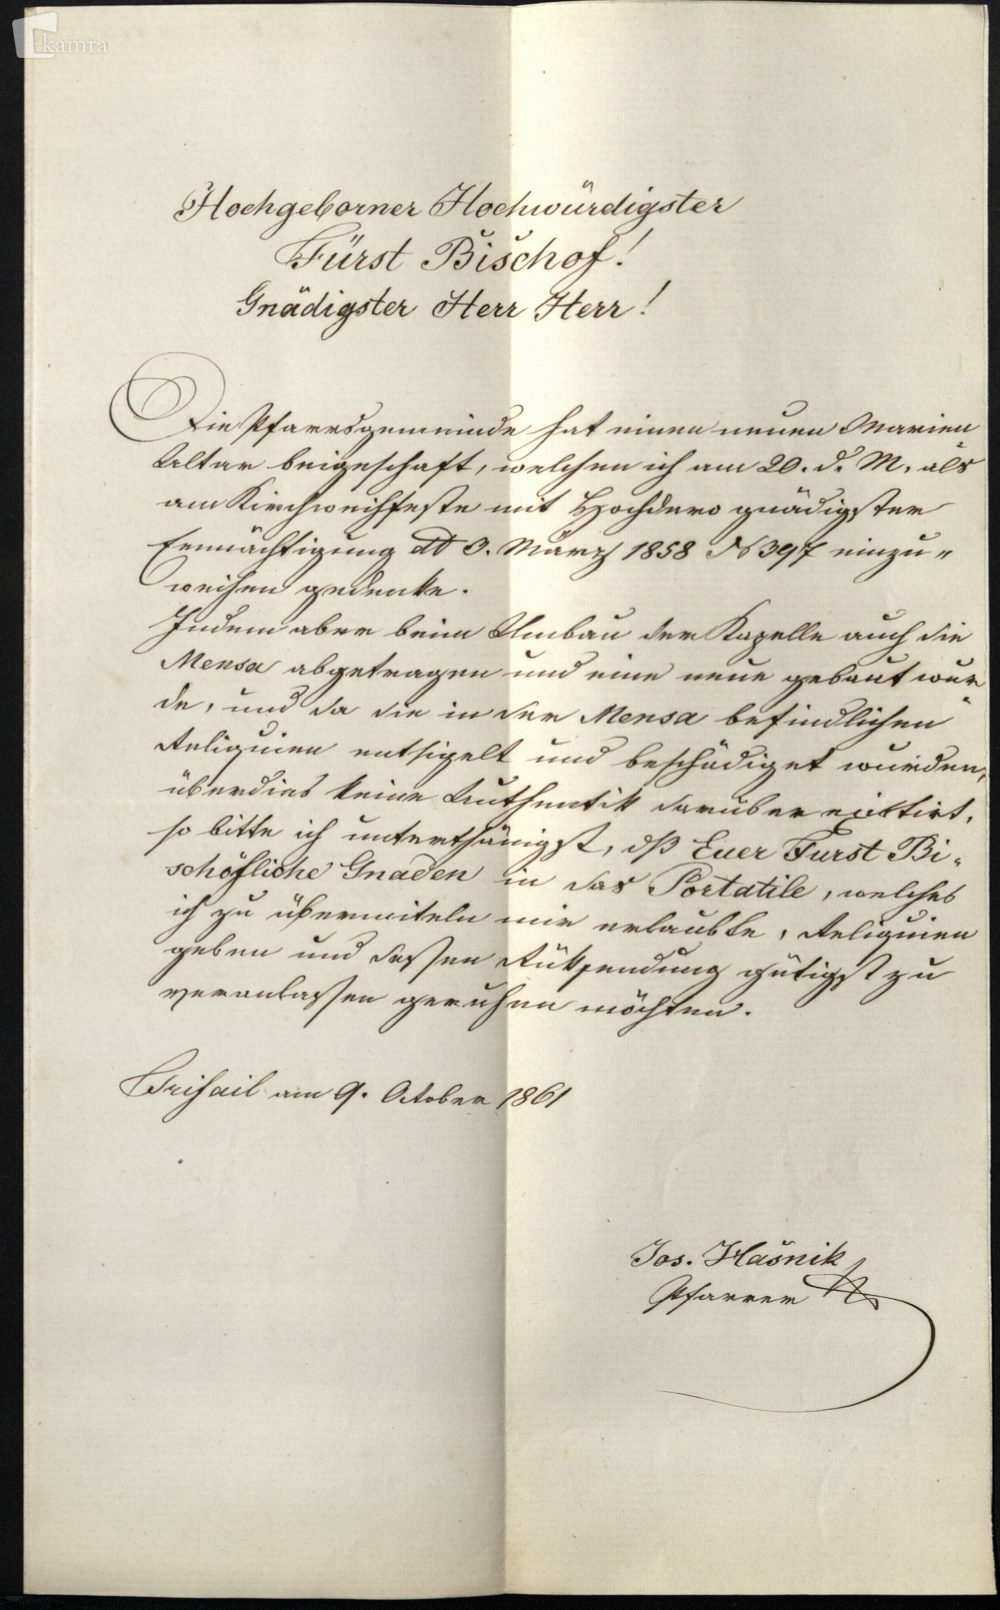 kamra
Hochgeborner Hochwürdigster
Fürst Bischof!
Gnädigster Herr Herr!
Die Pfarrsgemeinde hat einen neuen Marien
Altar beigeschaft, welchen ich am 20. d. M. als
am Kirchweihfeste mit Hochdero gnädigster
Ermächtigung dd 3. März 1858 N 397 einzu„
weihen gedenke.
Indem aber beim Umbau der Kapelle auch die
Mensa abgetragen und eine neue gebaut wur
de, und da die in der Mensa befindlichen
Reliquien entsigelt und beschädiget wurden,
überdies keine Authentik darüber existirt,
so bitte ich unterthänigst, dß Euer Furst Bi„
schöfliche Gnaden in das Portatile, welches
ich zu übermiteln mir erlaubte, Reliquien
geben und dessen Rüksendung gütigst zu
veranlassen geruhen möchten.
Trifail am 9. October 1861
Jos. Hašnik
Pfarrer